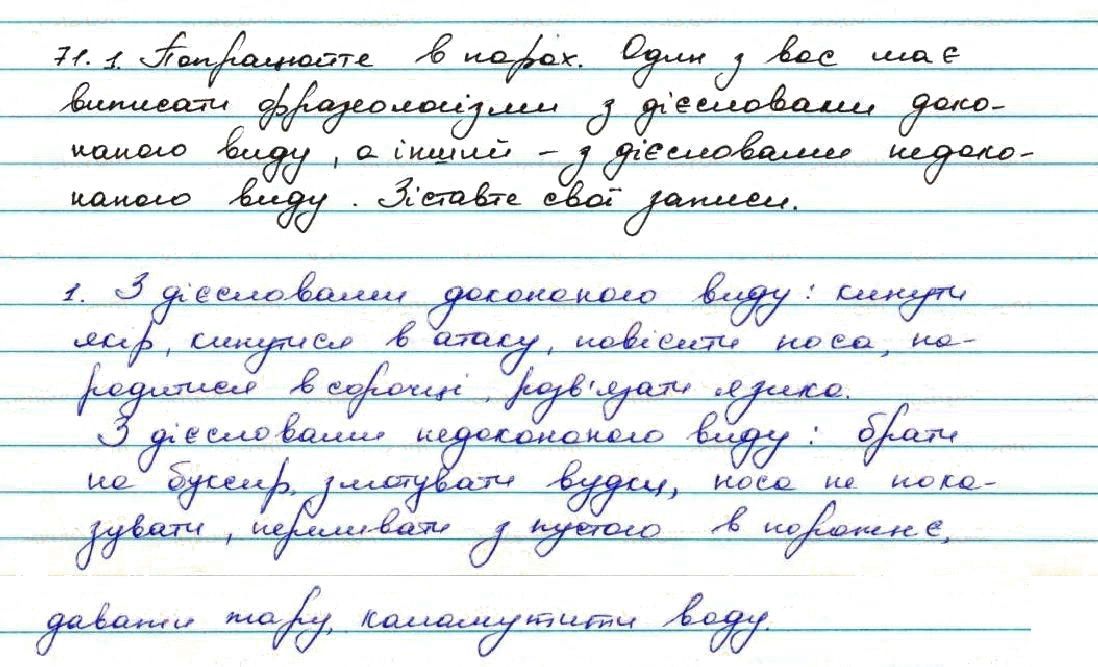 71. 1. Попрацюйте в парах. Один з вас має
виписати фразеологізми з дієсловами доко-
наного виду, а інший – з дієсловами недоко-
наного виду. Зіставте свої записи.
1. З дієсловами доконаного виду: кинути
якір, кинутися в атаку, повісити носа, на-
родитися в сорочці, розв'язати язика.
З дієсловами недоконаного виду: брати
на буксир, змотувати вудки, носа не пока-
зувати, переливати з пустого в порожнє,
давати жару, каламутити воду.